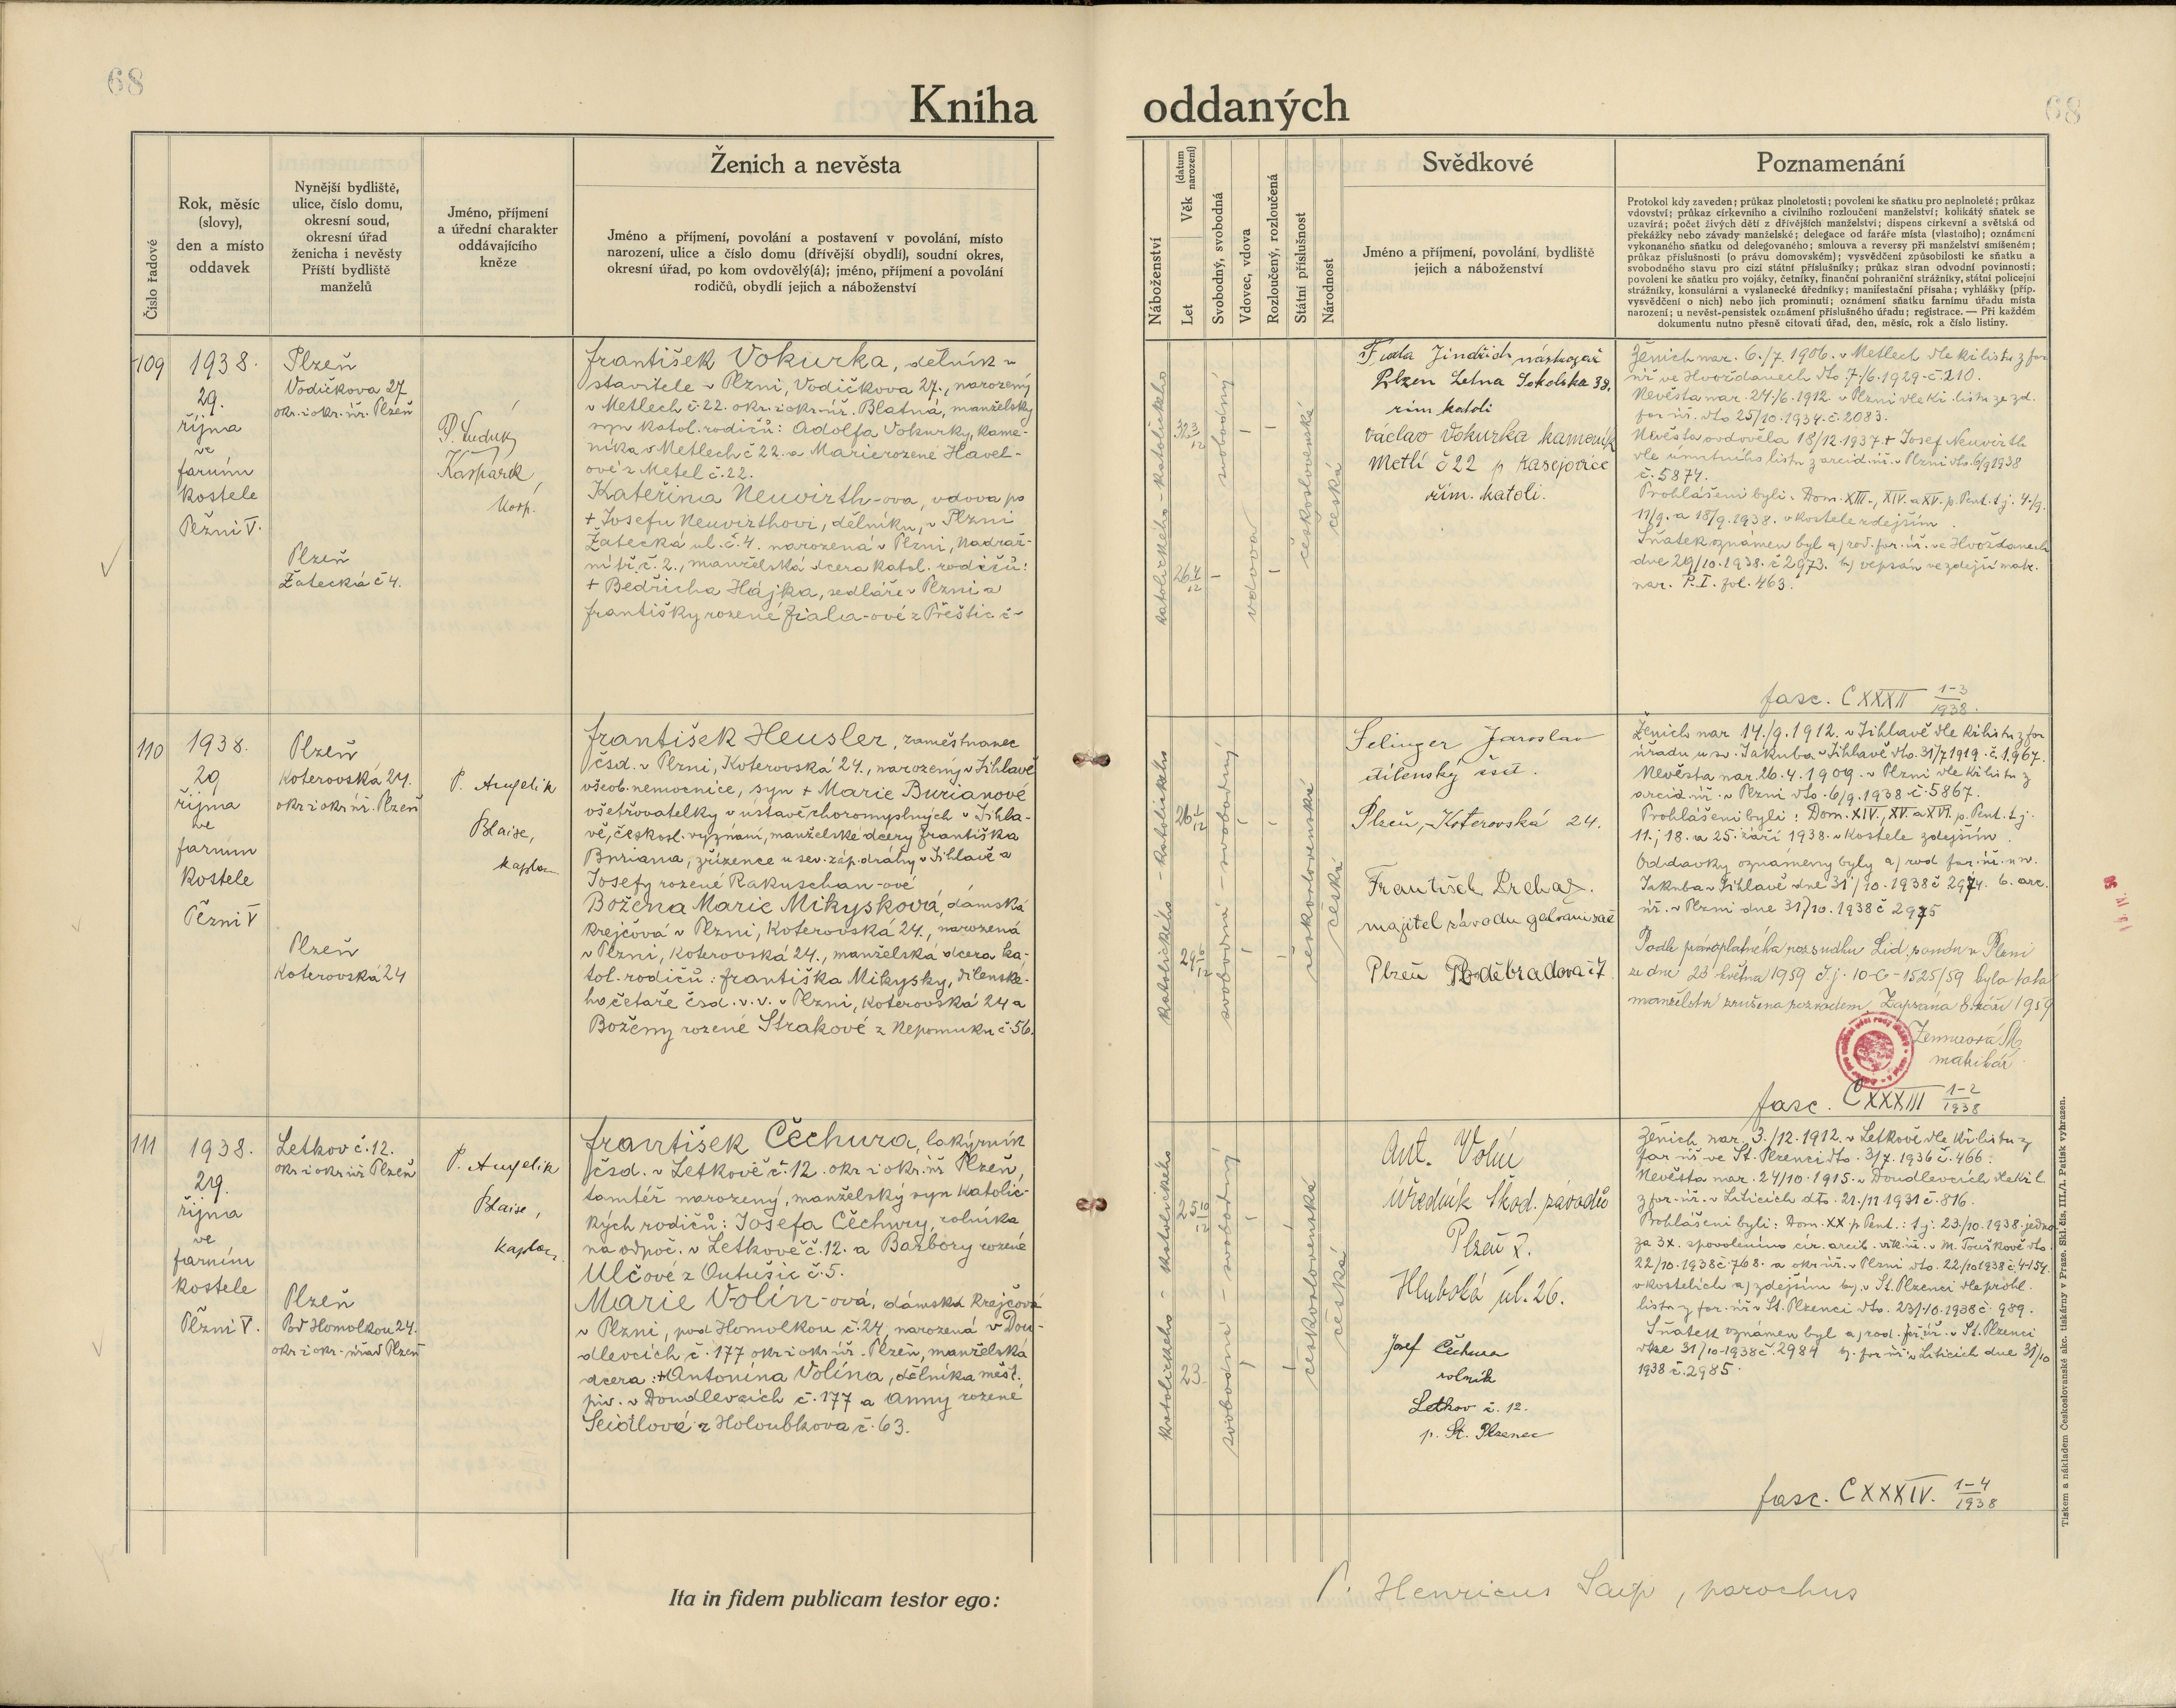 68
68
Kniha oddaných
Číslo řadové
Rok, měsíc
(slovy),
den a místo
oddavek
Nynější bydliště,
ulice, číslo domu,
okresní soud,
okresní úřad
ženicha i nevěsty
Příští bydliště
manželů
Jméno, příjmení
a úřední charakter
oddávajícího
kněze
Ženich a nevěsta
Jméno a příjmení, povolání a postavení v povolání, místo
narození, ulice a číslo domu (dřívější obydlí), soudní okres,
okresní úřad, po kom ovdovělý(á); jméno, příjmení a povolání
rodičů, obydlí jejich a náboženství
Náboženství
Let
Věk (datum narození)
Svobodný, svobodná
Vdovec, vdova
Rozloučený, rozloučená
Státní příslušnost
Národnost
Svědkové
Jméno a příjmení, povolání, bydliště
jejich a náboženství
Poznamenání
Protokol kdy zaveden; průkaz plnoletosti; povolení ke sňatku pro neplnoleté; průkaz
vdovství; průkaz církevního a civilního rozloučení manželství; kolikátý sňatek se
uzavírá; počet živých dětí z dřívějších manželství; dispens církevní a světská od
překážky nebo závady manželské; delegace od faráře místa (vlastního); oznámení
vykonaného sňatku od delegovaného; smlouva a reversy při manželství smíšeném;
průkaz příslušnosti (o právu domovském); vysvědčení způsobilosti ke sňatku a
svobodného stavu pro cizí státní příslušníky; průkaz stran odvodní povinnosti;
povolení ke sňatku pro vojáky, četníky, finanční pohraniční strážníky, státní policejní
strážníky, konsulární a vyslanecké úředníky; manifestační přísaha; vyhlášky (příp.
vysvědčení o nich) nebo jich prominutí; oznámení sňatku farnímu úřadu místa
narození; u nevěst-pensistek oznámení příslušného úřadu; registrace. — Při každém
dokumentu nutno přesně citovati úřad, den, měsíc, rok a číslo listiny.
109
1938.
29.
října
ve
farním
kostele
Plzni V.
Plzeň
Vodičkova 27
okr. i okr. úř. Plzeň
Plzeň
Žatecká č 4.
P. Luduk
Kašparek,
koop.
František Vokurka, dělník u
stavitele v Plzni, Vodičkova 27., narozený
v Metlech č. 22. okr. i okr. úř. Blatná, manželský
syn katol. rodičů: Adolfa Vokurky, kame-
níka v Metlech č 22. a Marie rozené Havel-
ové z Metel č. 22.
Kateřina Neuvirth-ova, vdova po
+ Josefu Neuvirthovi, dělníku, v Plzni
Žatecká ul. č. 4. narozená v Plzni, Nádraž-
ní tř. č. 2., manželská dcera katol. rodičů:
+ Bedřicha Hájka, sedláře v Plzni a
Františky rozené Fiala-ové z Přeštic č-
katolického - katolického
32 3/12
26 4/12
svobodný
vdova
československá
česká
Fiala Jindřich nástrojař
Plzen Letna Sokolska 38.
řím katoli
Václav Vokurka kameník
Metlí č 22 p Kasejovice
řím. katoli.
Ženich nar. 6./7. 1906. v Metlech dle kř. listu z far
úř ve Hvožďanech dto. 7./6. 1929. č. 210.
Nevěsta nar. 24./6. 1912. v Plzni dle kř. listu ze zd.
far. úř. dto 25/10. 1934. č. 2083.
Nevěsta ovdověla 18/12. 1937. + Josef Neuvirth
dle úmrtního listu z arcid. úř. v Plzni dto. 6/9 1938
č. 5874.
Prohlášeni byli: Dom. XIII., XIV. a XV. p. Pent. t. j. 4./9.
11/9. a 18/9. 1938. v kostele zdejším.
Sňatek oznámen byl a) rod. far. úř. ve Hvožďanech
dne 29/10. 1938. č 2973. b) vepsán ve zdejší matr.
nar. P. I. fol. 463.
fasc. CXXXII 1-3/1938.
110
1938.
29
října
ve
farním
kostele
Plzni V
Plzeň
Koterovská 24.
okr i okr. úř. Plzeň
Plzeň
Koterovská 24
P. Angelik
Blaise,
kaplan
František Heusler, zaměstnanec
čsd. v Plzni, Koterovská 24., narozený v Jihlavě
všeob. nemocnice, syn + Marie Burianové
ošetřovatelky v ústavě choromyslných v Jihla-
vě, českosl. vyznání, manželské dcery Františka
Buriana, zřízence u sev. záp. dráhy v Jihlavě a
Josefy rozené Rakuschan-ové
Božena Marie Mikysková, dámská
krejčová v Plzni, Koterovská 24., narozená
v Plzni, Koterovská 24., manželská dcera ka-
tol. rodičů: Františka Mikysky, dílenské-
ho četaře čsd. v. v. v Plzni, Koterovská 24 a
Boženy rozené Strakové z Nepomuku č. 56.
katolického - katolického
26 1/12
29 6/12
svobodná - svobodný
československá
česká
Selinger Jaroslav
dílenský čsd.
Plzeň, Koterovská 24.
František Brchaz.
majitel závodu galvanisač
Plzeň Poděbradova č 7
Ženich nar 14./9. 1912. v Jihlavě dle kř. listu z far
úřadu u sv. Jakuba v Jihlavě dto. 31/7 1919. č. 1967.
Nevěsta nar. 26. 4. 1909. v Plzni dle kř. listu z
arcid. úř. v Plzni dto. 6/9. 1938 č. 5867.
Prohlášeni byli: Dom. XIV., XV. a XVI. p. Pent. t. j.
11., 18. a 25. září 1938. v kostele zdejším
Oddavky oznámeny byly a) rod far. úř. u sv.
Jakuba v Jihlavě dne 31/10. 1938 č 2974. b. arc.
úř. v Plzni dne 31/10. 1938 č 2975
Podle právoplatného rozsudku Lid. soudu v Plzni
ze dne 23 května 1959 č. j. 10-C-1525/59 bylo toto
manželství zrušeno rozvodem. Zapsáno 8. září 1959
matrikář
fasc. CXXXIII 1-2/1938
111
1938.
29.
října
ve
farním
kostele
Plzni V.
Letkov č. 12.
okr i okr úř Plzeň
Plzeň
Pod Homolkou 24.
okr i okr. úřad Plzeň
P. Angelik
Blaise,
kaplan
František Čechura, lakýrník
čsd. v Letkově č. 12. okr i okr. úř Plzeň,
tamtéž narozený, manželský syn katolic-
kých rodičů: Josefa Čechury, rolníka
na odpoč. v Letkově č. 12. a Barbory rozené
Ulčové z Outušic č. 5.
Marie Volín-ová, dámská krejčová
v Plzni, pod Homolkou č. 24, narozená v Dou-
dlevcích č. 177 okr i okr. úř. Plzeň, manželská
dcera: + Antonína Volína, dělníka měšť.
piv. v Doudlevcích č. 177 a Anny rozené
Seidlové z Holoubkova č. 63.
katolického - katolického
25 10/12
23
svobodná - svobodný
československá
česká
Ant. Volín
úředník Škod. závodů
Plzeň I.
Hluboká ul. 26.
Josef Čechura
rolník
Letkov č. 12.
p. St. Plzenec
Ženich nar. 3./12. 1912. v Letkově dle kř. listu z
far úř ve St. Plzenci dto. 3/7. 1936 č. 466.
Nevěsta nar. 24/10. 1915. v Doudlevcích dle kř. l
z far. úř. v Liticích dto. 21./11 1931 č. 816.
Prohlášeni byli: Dom. XX. p Pent.: t. j. 23/10. 1938. jedno
za 3x. s povolením cír. arcib. vik. úř. v M. Touškově dto.
22/10. 1938 č 768. a okr. úř. v Plzni dto. 22/10 1938 č. 4-154.
v kostelích a) zdejším b) v St. Plzenci dle prohl.
listu z far. úř v St. Plzenci dto. 23/10. 1938 č. 989.
Sňatek oznámen byl a) rod. far. úř. v St. Plzenci
dne 31/10. 1938 č. 2984 b) far úř v Liticích dne 31/10
1938 č. 2985.
fasc. CXXXIV. 1-4/1938
Ita in fidem publicam testor ego:
P. Henricus Saip, parochus
Tiskem a nákladem Československé akc. tiskárny v Praze. Skl. čís. III./1. Patisk vyhrazen.